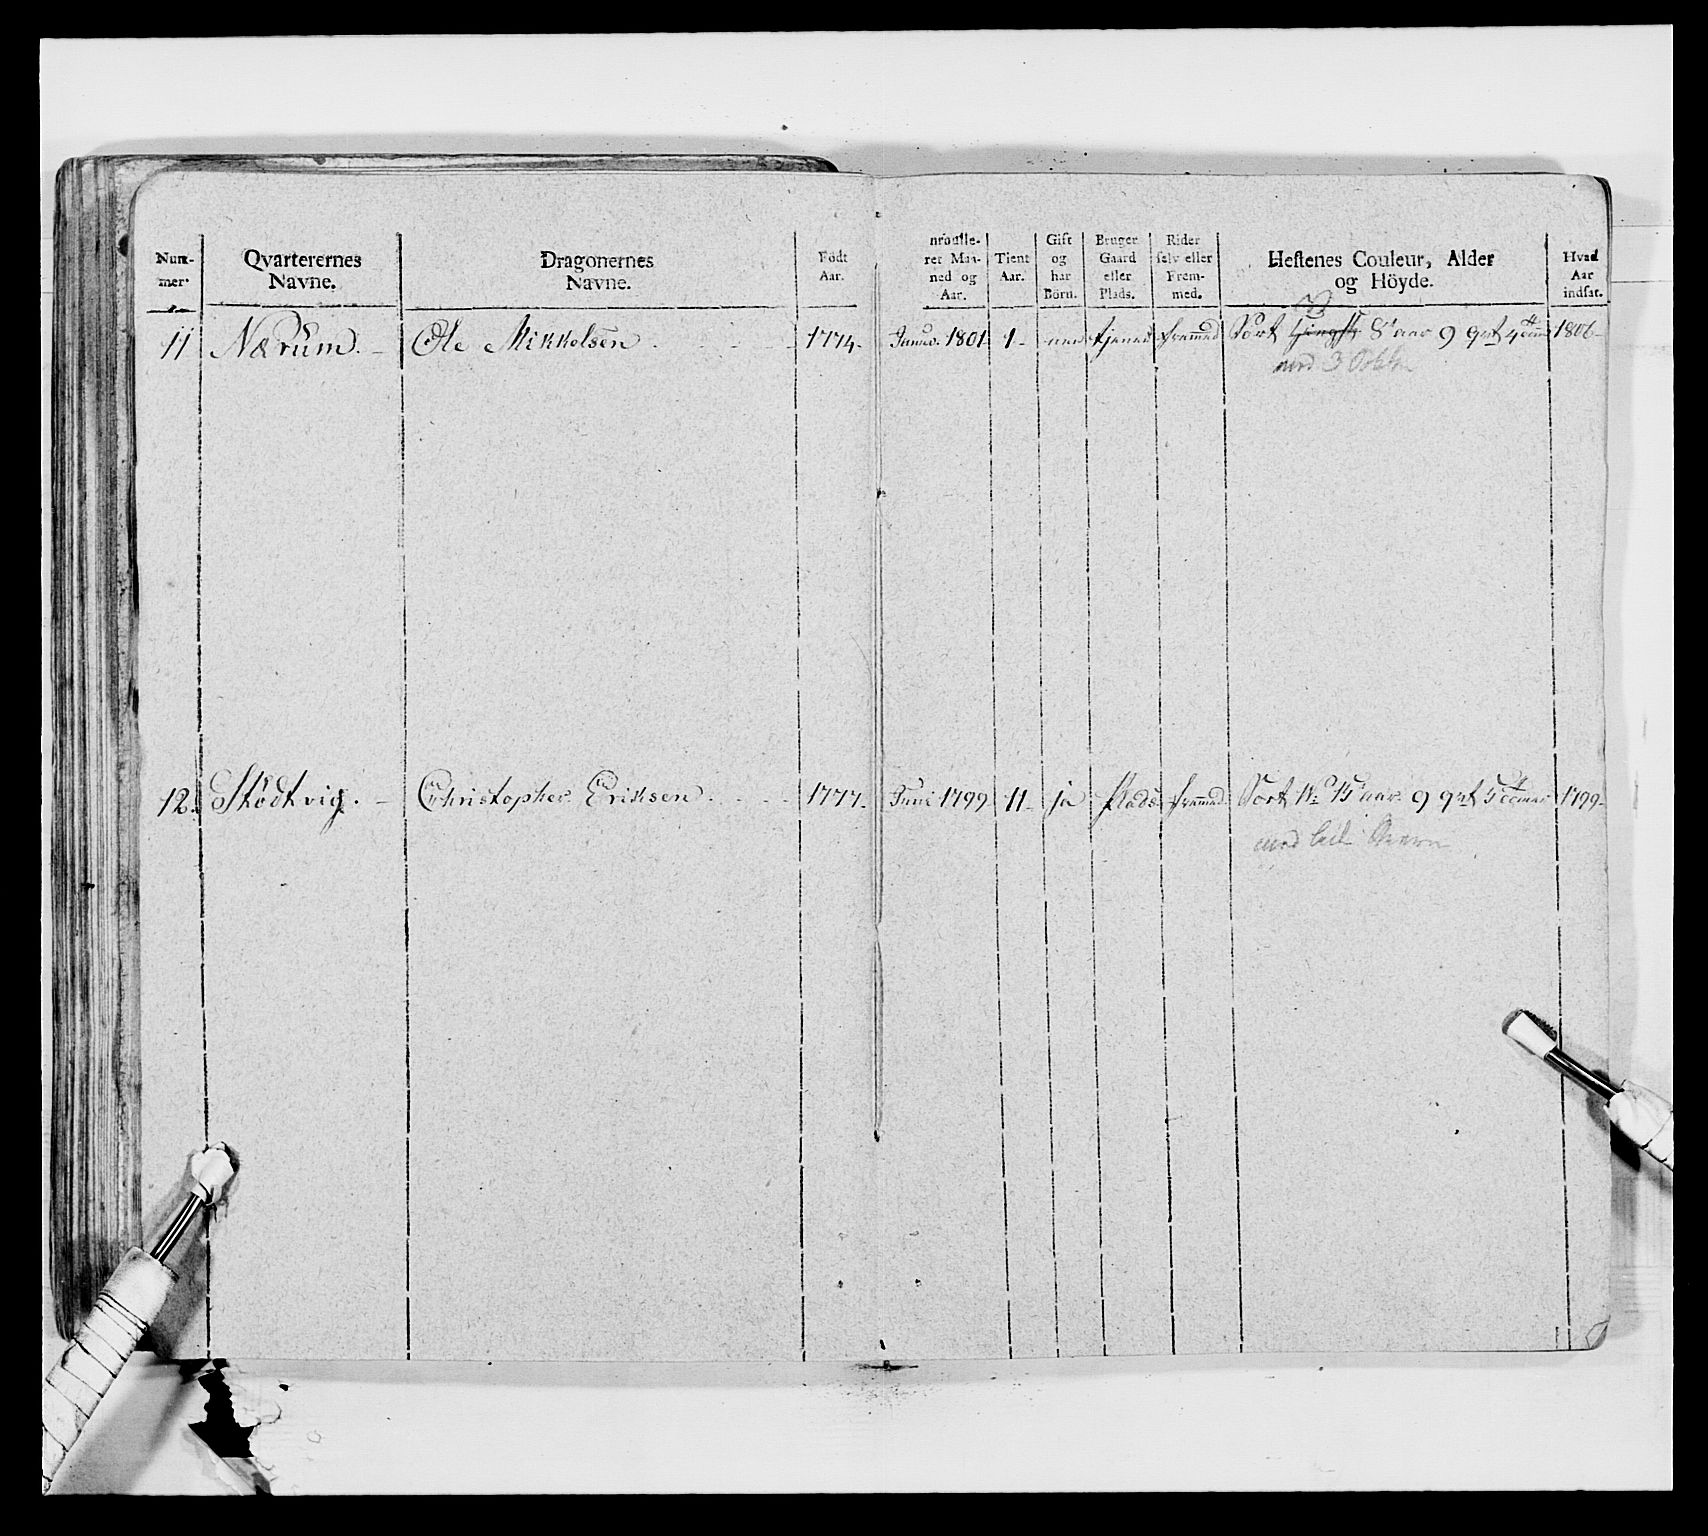 Num-
mer.
Qvarterernes
Navne.
Dragonernes
Navne.
Födt
Aar.
nroulle-
ret Maa-
ned og
Aar.
Tient
Aar.
Gift
og
har
Börn.
Bruger
Gaard
eller
Plads.
Rider
selv eller
Frem-
med.
Hestenes Couleur, Alder
og Höyde.
Hvad
Aar
indsat.
11 Nærum. Ole Mikkelsen. 1774. Janv. 1801 1 tjener fremmed Sort 8 aar 9 qrt 4 1806
med 3
12. Stödtvig. Christopher Eriksen. 1777. Juni 1799 11 ja Plads fremmed Sort 15 aar 9 qrt 1799